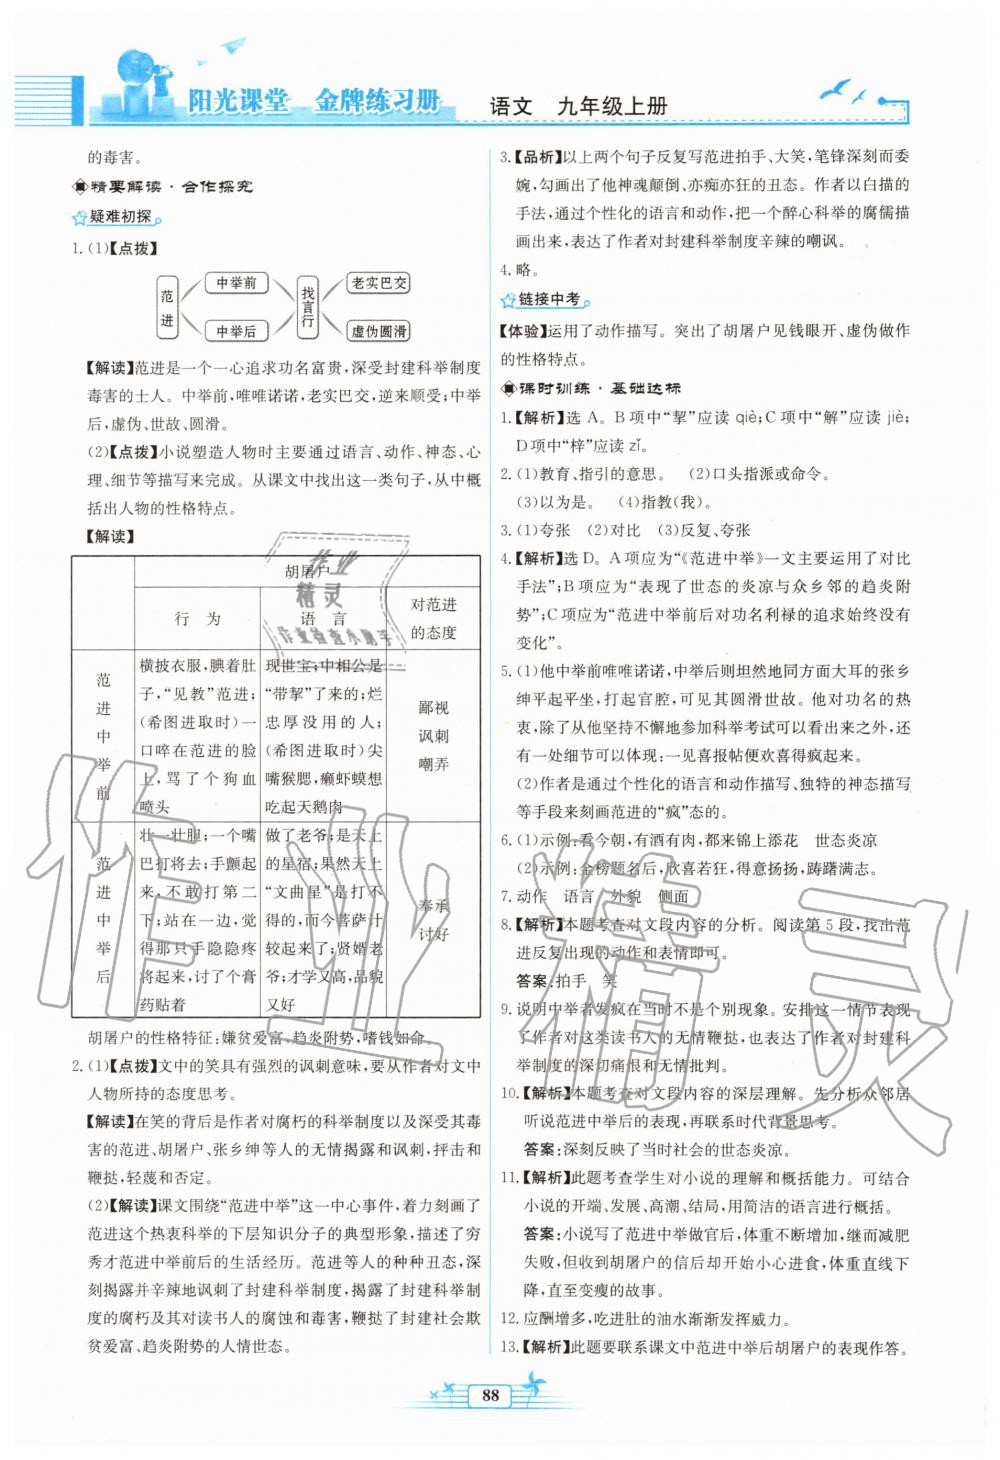 阳光课堂 金牌练习册 语文 九年级上册
的毒害。
精要解读·合作探究
疑难初探
1.(1)【点拨】
范进
中举前
中举后
找言行
老实巴交
虚伪圆滑
【解读】范进是一个一心追求功名富贵，深受封建科举制度
毒害的士人。中举前，唯唯诺诺，老实巴交，逆来顺受；中举
后，虚伪、世故、圆滑。
(2)【点拨】小说塑造人物时主要通过语言、动作、神态、心
理、细节等描写来完成。从课文中找出这一类句子，从中概
括出人物的性格特点。
【解读】
胡屠户
行 为
语 言
对范进
的态度
范进中举前
横披衣服，腆着肚
子，“见教”范进；
(希图进取时)一
口啐在范进的脸
上，骂了个狗血
喷头
现世宝；中相公是
“带挈”了来的；烂
忠厚没用的人；
(希图进取时)尖
嘴猴腮，癞虾蟆想
吃起天鹅肉
鄙视
讽刺
嘲弄
范进中举后
壮一壮胆；一个嘴
巴打将去；手颤起
来，不敢打第二
下；站在一边，觉
得那只手隐隐疼
将起来，讨了个膏
药贴着
做了老爷；是天上
的星宿；果然天上
“文曲星”是打不
得的，而今菩萨计
较起来了；贤婿老
爷；才学又高，品貌
又好
奉承
讨好
胡屠户的性格特征：嫌贫爱富，趋炎附势，嗜钱如命。
2.(1)【点拨】文中的笑具有强烈的讽刺意味，要从作者对文中
人物所持的态度思考。
【解读】在笑的背后是作者对腐朽的科举制度以及深受其毒
害的范进、胡屠户、张乡绅等人的无情揭露和讽刺，抨击和
鞭挞，轻蔑和否定。
(2)【解读】课文围绕“范进中举”这一中心事件，着力刻画了
范进这个热衷科举的下层知识分子的典型形象，描述了穷
秀才范进中举前后的生活经历。范进等人的种种丑态，深
刻揭露并辛辣地讽刺了封建科举制度，揭露了封建科举制
度的腐朽及其对读书人的腐蚀和毒害，鞭挞了封建社会欺
贫爱富、趋炎附势的人情世态。
3.【品析】以上两个句子反复写范进拍手、大笑，笔锋深刻而委
婉，勾画出了他神魂颠倒、亦痴亦狂的丑态。作者以白描的
手法，通过个性化的语言和动作，把一个醉心科举的腐儒描
画出来，表达了作者对封建科举制度辛辣的嘲讽。
4.略。
链接中考
【体验】运用了动作描写。突出了胡屠户见钱眼开、虚伪做作
的性格特点。
课时训练·基础达标
1.【解析】选 A。B 项中“挈”应读 qiè；C 项中“解”应读 jiè；
D 项中“梓”应读 zǐ。
2.(1)教育、指引的意思。 (2)口头指派或命令。
(3)以为是。 (4)指教(我)。
3.(1)夸张 (2)对比 (3)反复、夸张
4.【解析】选 D。A 项应为“《范进中举》一文主要运用了对比
手法”；B 项应为“表现了世态的炎凉与众乡邻的趋炎附
势”；C 项应为“范进中举前后对功名利禄的追求始终没有
变化”。
5.(1)他中举前唯唯诺诺，中举后则坦然地同方面大耳的张乡
绅平起平坐，打起官腔，可见其圆滑世故。他对功名的热
衷，除了从他坚持不懈地参加科举考试可以看出来之外，还
有一处细节可以体现：一见喜报帖便欢喜得疯起来。
(2)作者是通过个性化的语言和动作描写、独特的神态描写
等手段来刻画范进的“疯”态的。
6.(1)示例：看今朝，有酒有肉，都来锦上添花 世态炎凉
(2)示例：金榜题名后，欣喜若狂，得意扬扬，踌躇满志。
7.动作 语言 外貌 侧面
8.【解析】本题考查对文段内容的分析。阅读第 5 段，找出范
进反复出现的动作和表情即可。
答案：拍手 笑
9.说明中举者发疯在当时不是个别现象。安排这一情节表现
了作者对这类读书人的无情鞭挞，表达了作者对封建科
举制度的深切痛恨和无情批判。
10.【解析】本题考查对文段内容的深层理解。先分析众邻居
听说范进中举后的表现，再联系时代背景思考。
答案：深刻反映了当时社会的世态炎凉。
11.【解析】此题考查学生对小说的理解和概括能力。可结合
小说的开端、发展、高潮、结局，用简洁的语言进行概括。
答案：小说写了范进中举做官后，体重不断增加，继而减肥
失败，但收到胡屠户的信后却开始小心进食，体重直线下
降，直至变瘦的故事。
12.应酬增多，吃进肚的油水渐渐发挥威力。
13.【解析】此题要联系课文中范进中举后胡屠户的表现作答。
88
作业
精灵
作业检查小助手
作业精灵